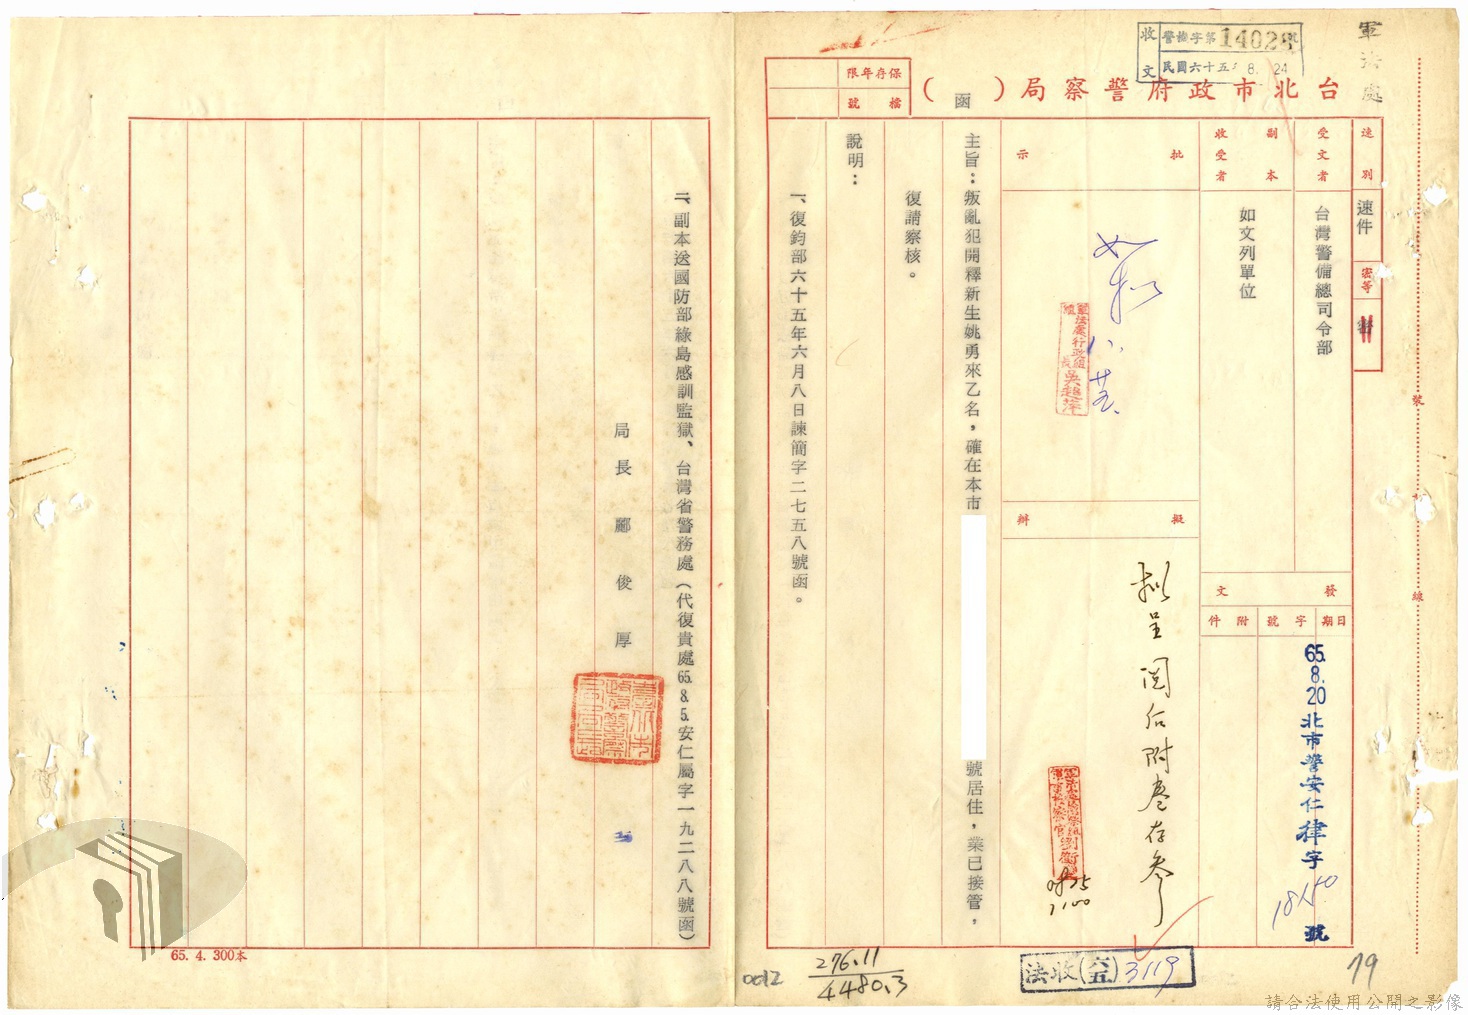 軍法處
收文
警檢字第14028號
民國六十五年8.24
台北市政府警察局（函）
保存年限
檔號
速別
速件
密等
受文者
台灣警備總司令部
副本收受者
如文列單位
發文
日期
字號
附件
65.8.20
北市警安仁律字
18150
號
批示
如擬
八、廿五、
擬辦
擬呈閱后附卷存參
0825
1100
主旨：叛亂犯開釋新生姚勇來乙名，確在本市
號居住，業已接管，
復請察核。
說明：
一、復鈞部六十五年六月八日諫簡字二七五八號函。
二、副本送國防部綠島感訓監獄、台灣省警務處（代復貴處65.8.5.安仁屬字一九二八八號函）
局長 酈俊厚
裝
訂
線
法收(六五)3119
79
276.11
4480.3
0012
65.4.300本
請合法使用公開之影像